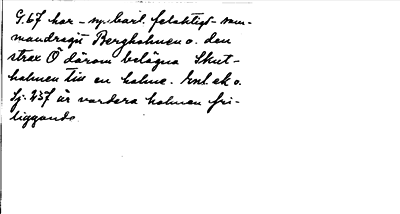 G. 67 har - uppenbarl. felaktigt - sam-
mandragit Bergholmen o. den
strax Ö därom belägna Skut-
holmen till en holme. Enl. ek o.
Sj. 237 är vardera holmen fri-
liggande